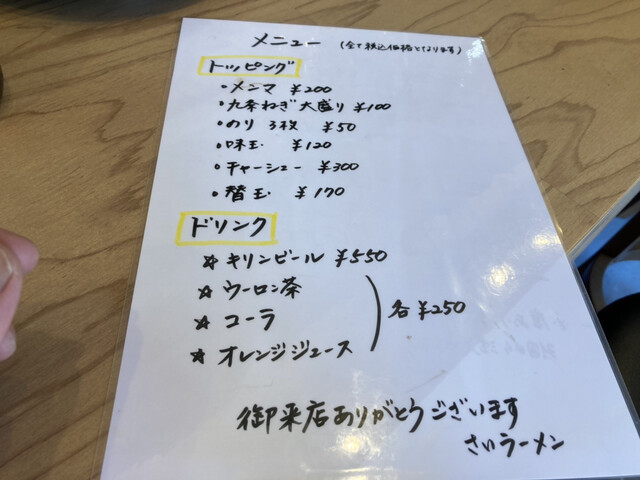 メニュー (全て税込価格となります)
トッピング
・メンマ ¥200
・九条ねぎ大盛り ¥100
・のり 3枚 ¥50
・味玉 ¥120
・チャーシュー ¥300
・替玉 ¥170
ドリンク
☆キリンビール ¥550
☆ウーロン茶
☆コーラ 各¥250
☆オレンジジュース
御来店ありがとうございます
さいラーメン